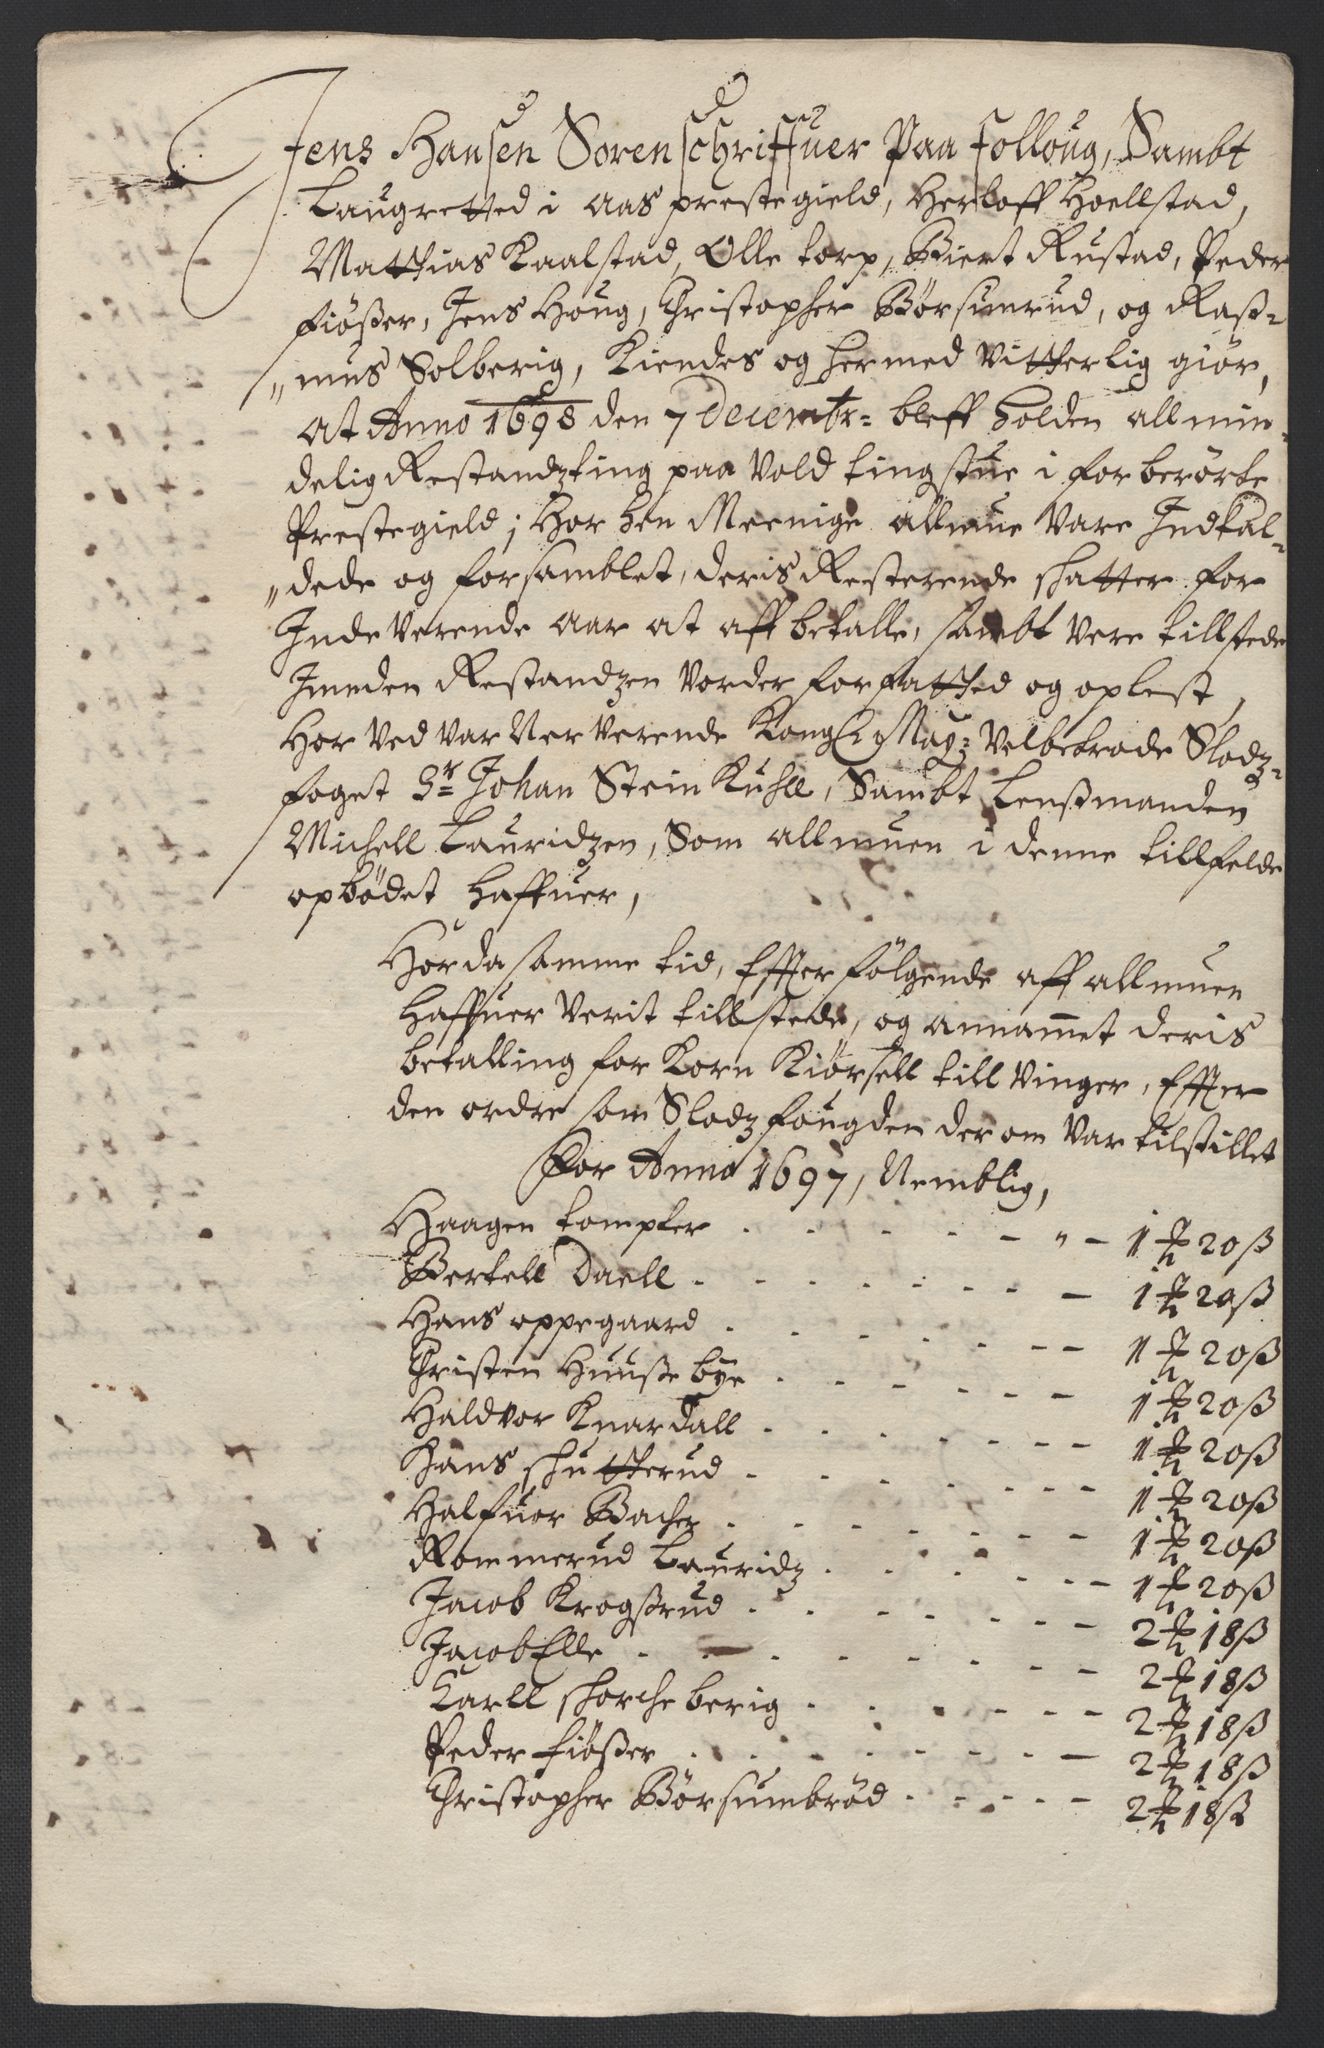 Jens Hansen Sorenschriffuer Paa Folloug, Sambt
Laugretted i Aas prestegield, Herloff Hoellstad,
Matthias Kaalstad, Olle torp, Biert Rustad, Peder
fiøßer, Jens Houg, Christopher Børsumrud, og Raß=
"mus Solberig, Kiendes og hermed vitterlig giør,
at Anno 1698 den 7 Decembr= bleff holden allmin=
delig Restandzting paa Vold tingstue i forberørte
Prestegield; Hor hen Meenige allmue vare Indkal=
"dede og forsamblet, deris Resterende skatter for
Inde verende aar at aff betalle, sambt vere tillstede
Jmeden Restandzen vorder forfatted og oplest,
Hor ved var Nerverende Kongl: May: Velbetrode Slodz=
foget Sr= Johan Stein Kuhll, Sambt Lenßmanden
Michell Lauridzen, Som allmuen i denne tillfelde
opbødet haffuer,
Hor da samme tid, Effter følgende aff allmuen
haffuer verit tillstede, og annammet deris
betalling for Korn Kiørsell till Vinger, Effter
den ordre som Slodz fougden der om var tilstillet
for Anno 1697, Nemblig,
Haagen tompter - - - - - " - 1 ₰ 20 ß
Bertell Daell - - - - - - 1 ₰ 20 ß
Hans oppegaard - - - - - - 1 ₰ 20 ß
Christen Huuße bye - - - - - - 1 ₰ 20 ß
Haldvor Knardall - - - - - - 1 ₰ 20 ß
Hans skutterud - - - - - - 1 ₰ 20 ß
Halfuor Bacher - - - - - - 1 ₰ 20 ß
Rommerud Lauridz - - - - - 1 ₰ 20 ß
Jacob Krogßrud - - - - - - 2 ₰ 18 ß
Jacob Elle - - - - - - 2 ₰ 18 ß
Karll skorche berig - - - - - - 2 ₰ 18 ß
Peder fiøßer - - - - - - 2 ₰ 18 ß
Christopher Børsumbrød - - - - - 2 ₰ 18 ß